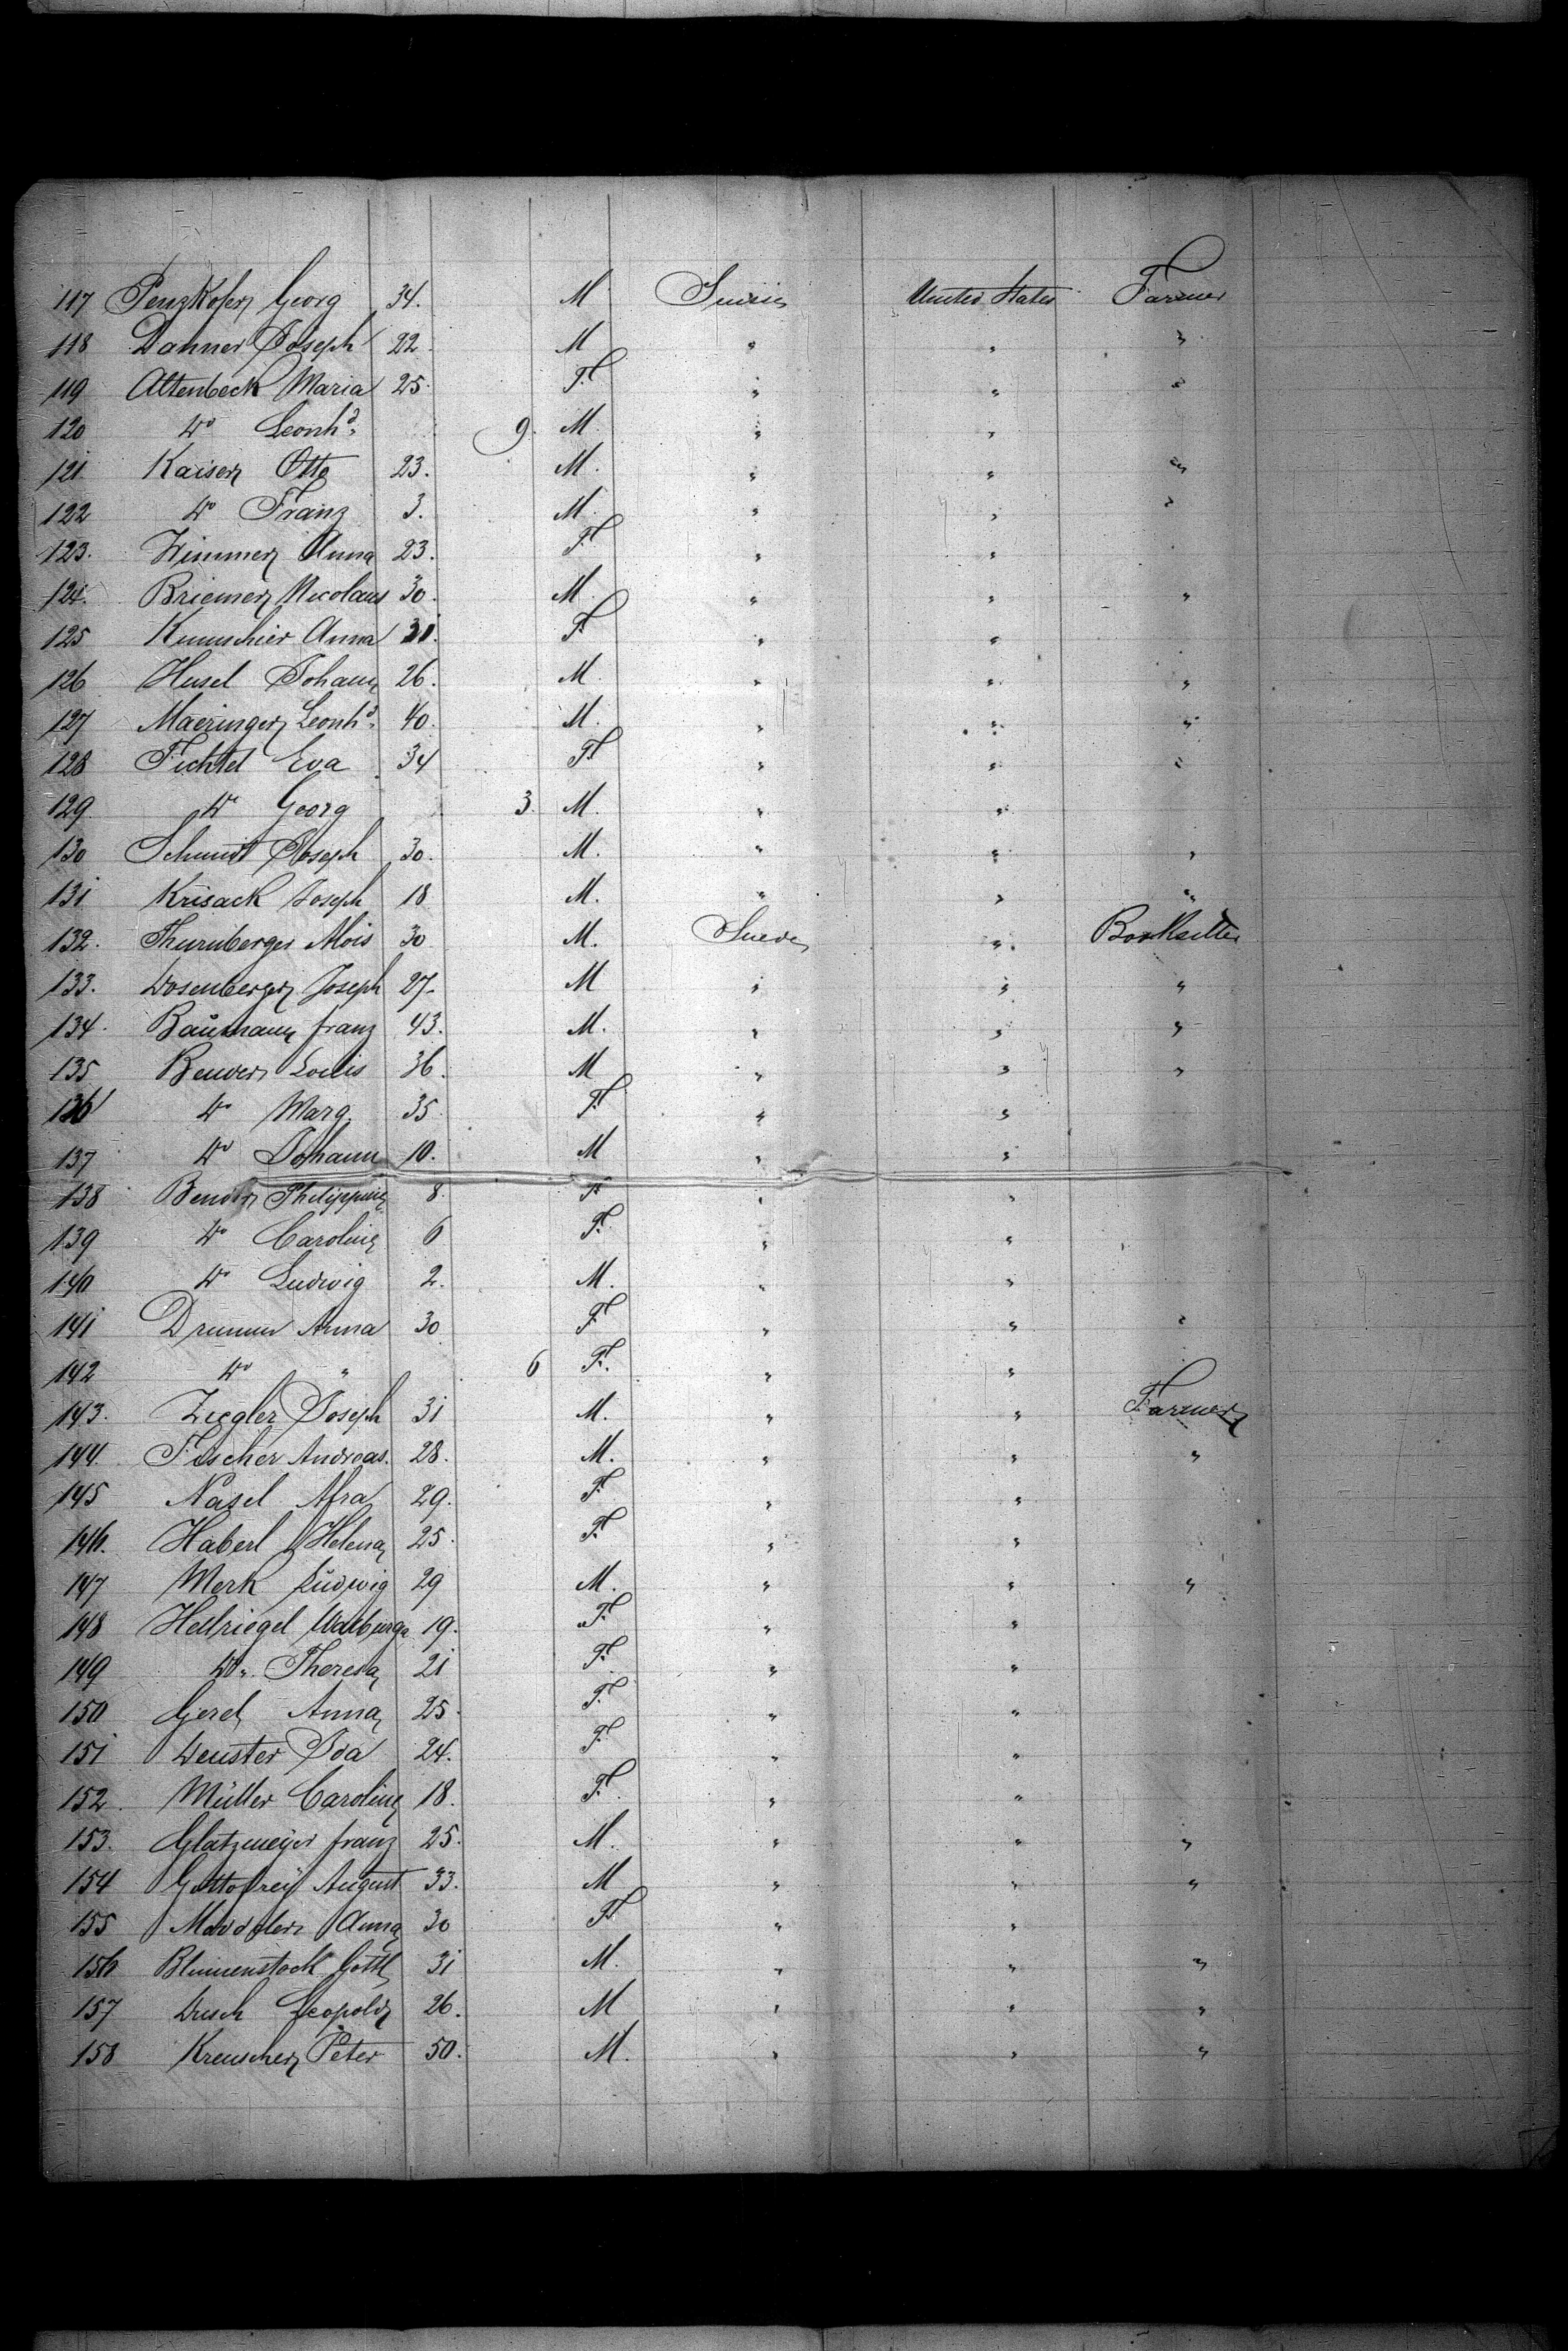 117 Penzkofer Georg 34. M Suisse United States Farmer
118 Danner Joseph 22. M " " "
119 Altenbeck Maria 25. F. " " "
120 do Leonhd. 9. M " "
121 Kaiser Otto 23. M. " " "
122 do Franz 3. M. " " "
123. Wimmer Anna 23. F " "
124. Briemer Nicolaus 30. M. " " "
125 Anna 31. F " "
126 Husel Johann 26. M. " " "
127 Maeringer Leonhd. 40. M. " " "
128 Fichtel Eva 34 F " " "
129 do Georg 3. M. " "
130 Schmidt Joseph 30. M. " " "
131 Krisack Joseph 18 M. " " "
132. Thurnberger Alois 30 M. Suede " Bookseller
133. Dosenberger Joseph 27. M " " "
134. Baumann Franz 43. M. " " "
135 Bender Louis 36. M " " "
136 do Marg. 35. F " "
137 do Johann 10. M " "
138 Bender Philippine 8. F " "
139 do Caroline 6 F. " "
140 do Ludwig 2. M. " "
141 Drumm Anna 30 F " " "
142 do " 6 F. " "
143. Ziegler Joseph 31 M. " " Farmer
144. Fischer Andreas. 28. M. " " "
145 Nasel Afra 29. F " "
146. Haberl Helena 25. F. " "
147 Merk Ludwig 29 M. " " "
148 Hellriegel Walburga 19. F. " "
149 do. Theresa 21 F. " "
150 Gerel Anna 25. F. " "
151 Deuster Ida 24. F " "
152. Müller Caroline 18. F. " "
153. Glatzmeyer Franz 25. M. " " "
154 Gottofrey August 33. M " " "
155 Anna 30 F " "
156 Blumenstock Gottl 31 M. " " "
157 Leopold 26. M " " "
158 Kreuscher Peter 50. M. " " "